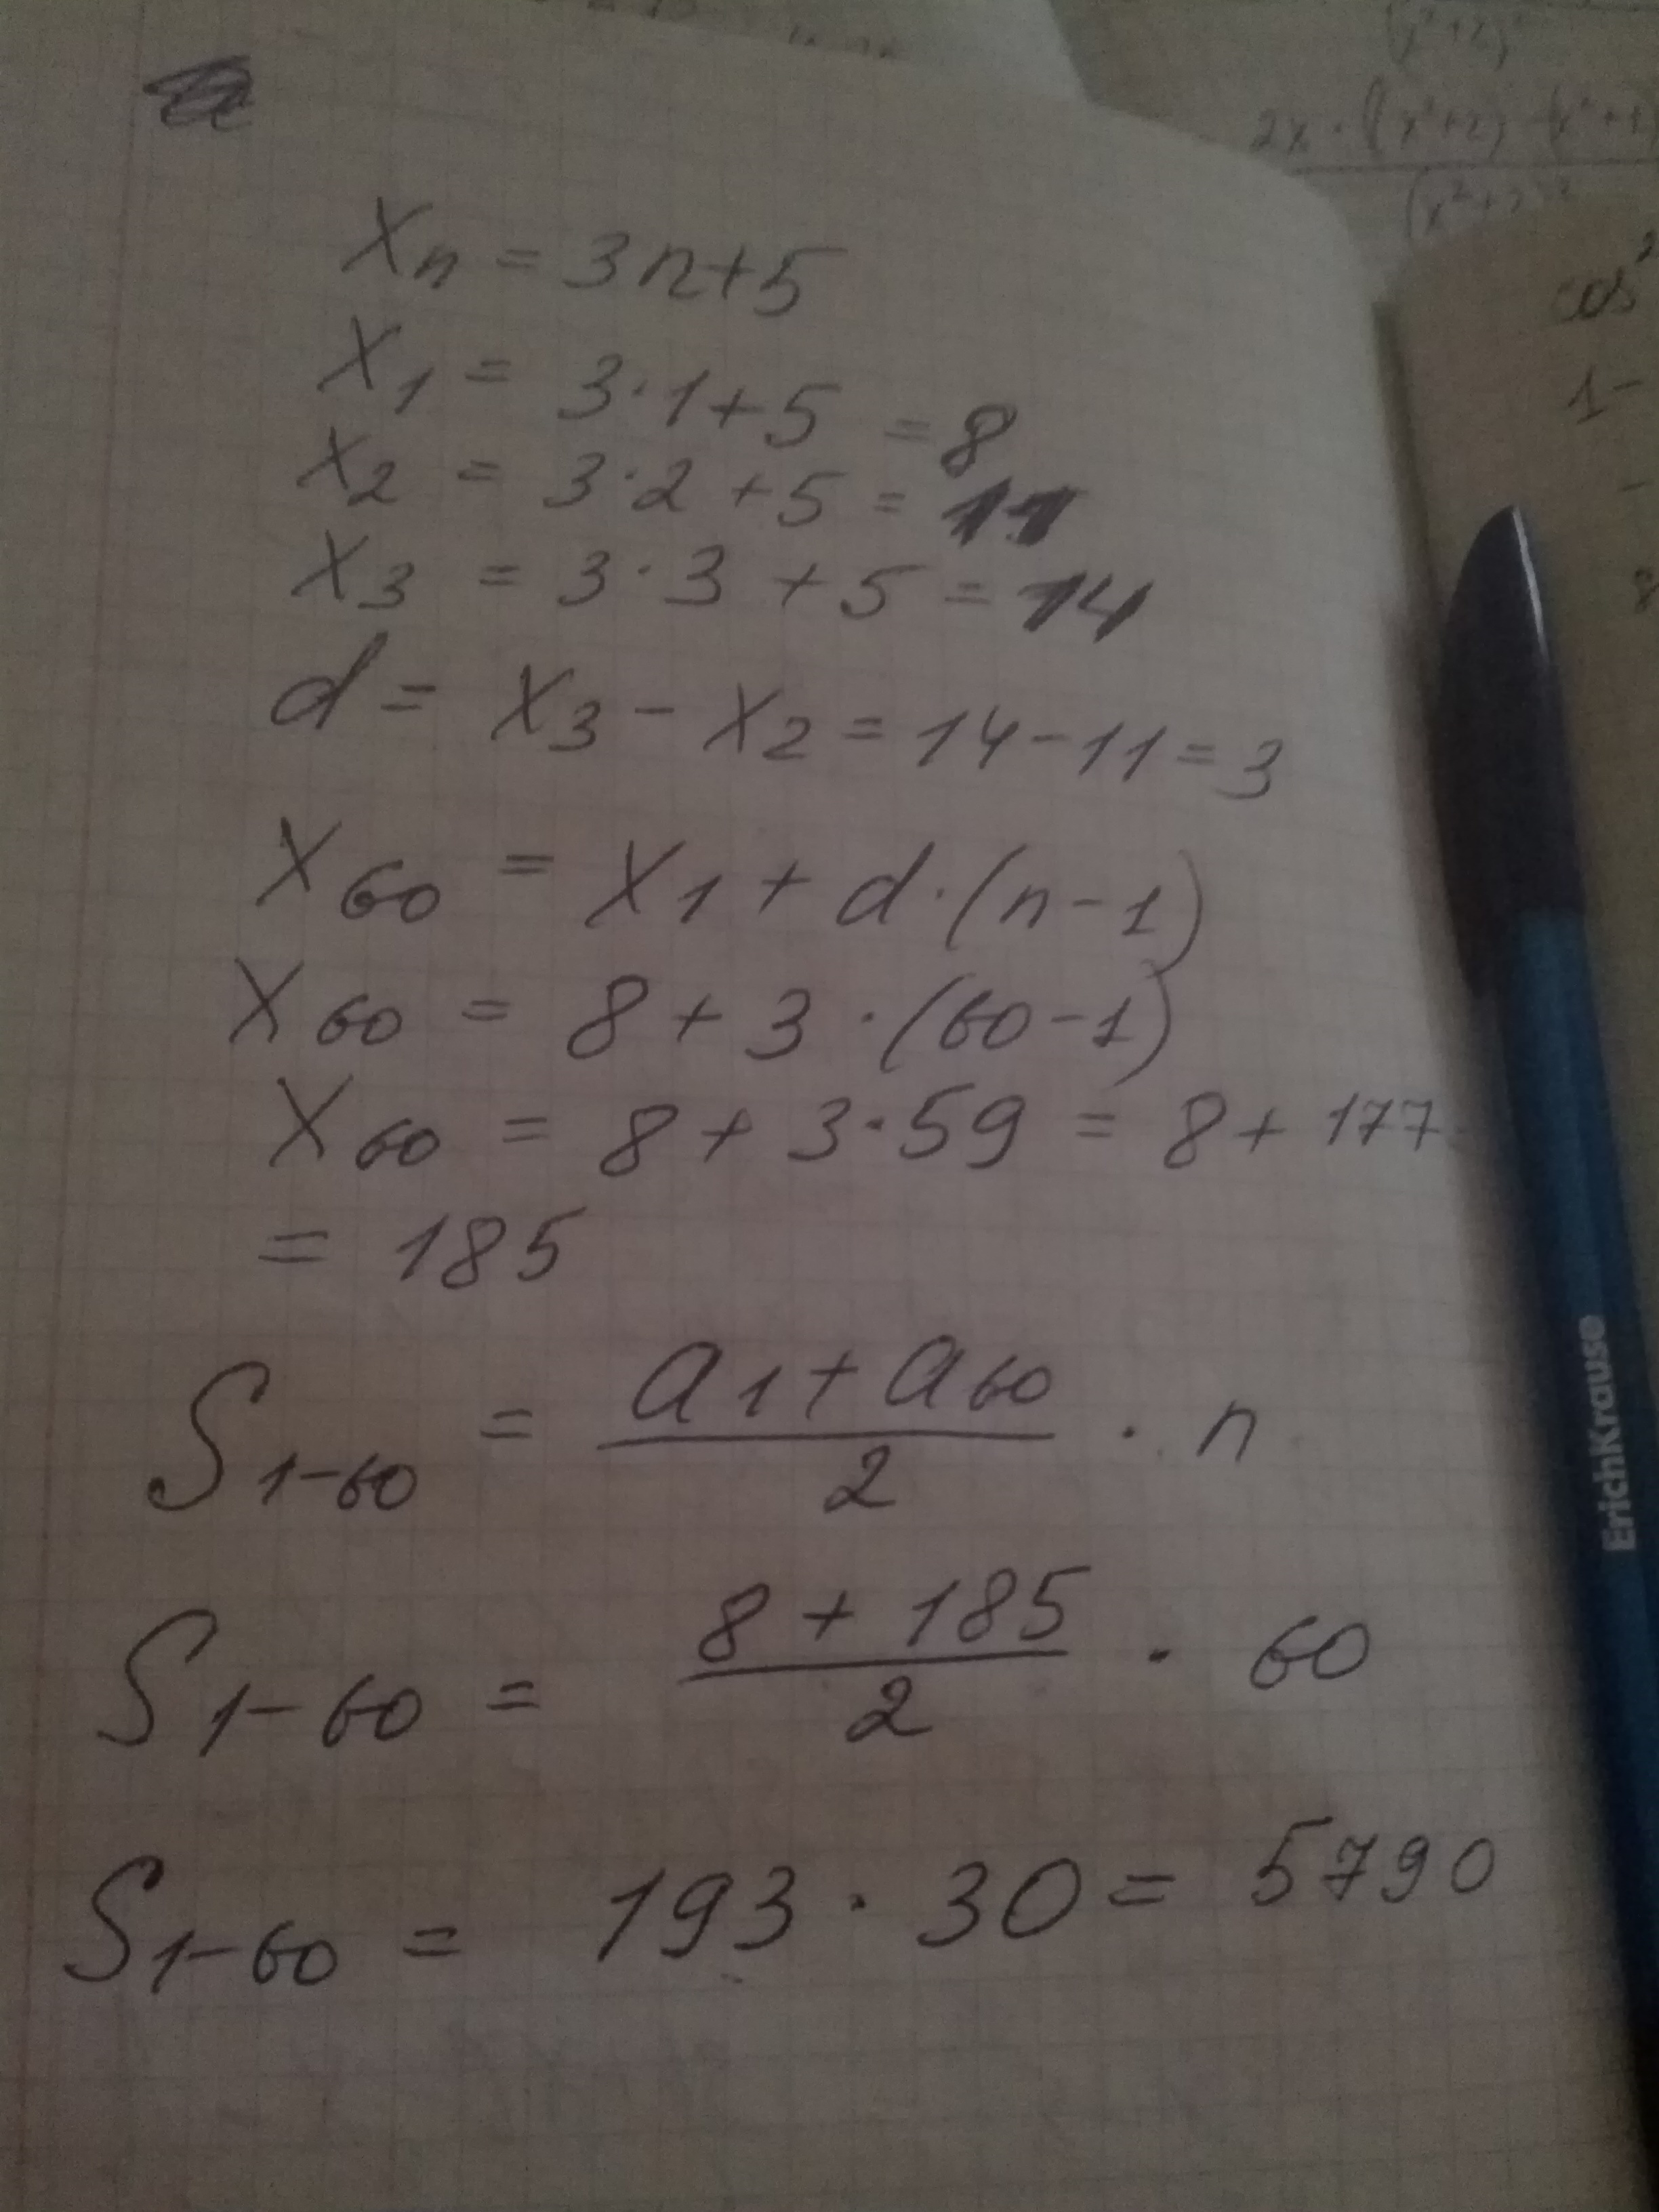 Xn = 3n+5
X1 = 3·1+5 = 8
X2 = 3·2+5 = 11
X3 = 3·3+5 = 14
d = X3 - X2 = 14-11 = 3
X60 = X1 + d·(n-1)
X60 = 8+3·(60-1)
X60 = 8+3·59 = 8+177
= 185
S1-60 = (a1+a60)/2 · n
S1-60 = (8+185)/2 · 60
S1-60 = 193·30 = 5790
2x·((x²+2)-(x²+1)
cos²
1-
-
8
ErichKrause